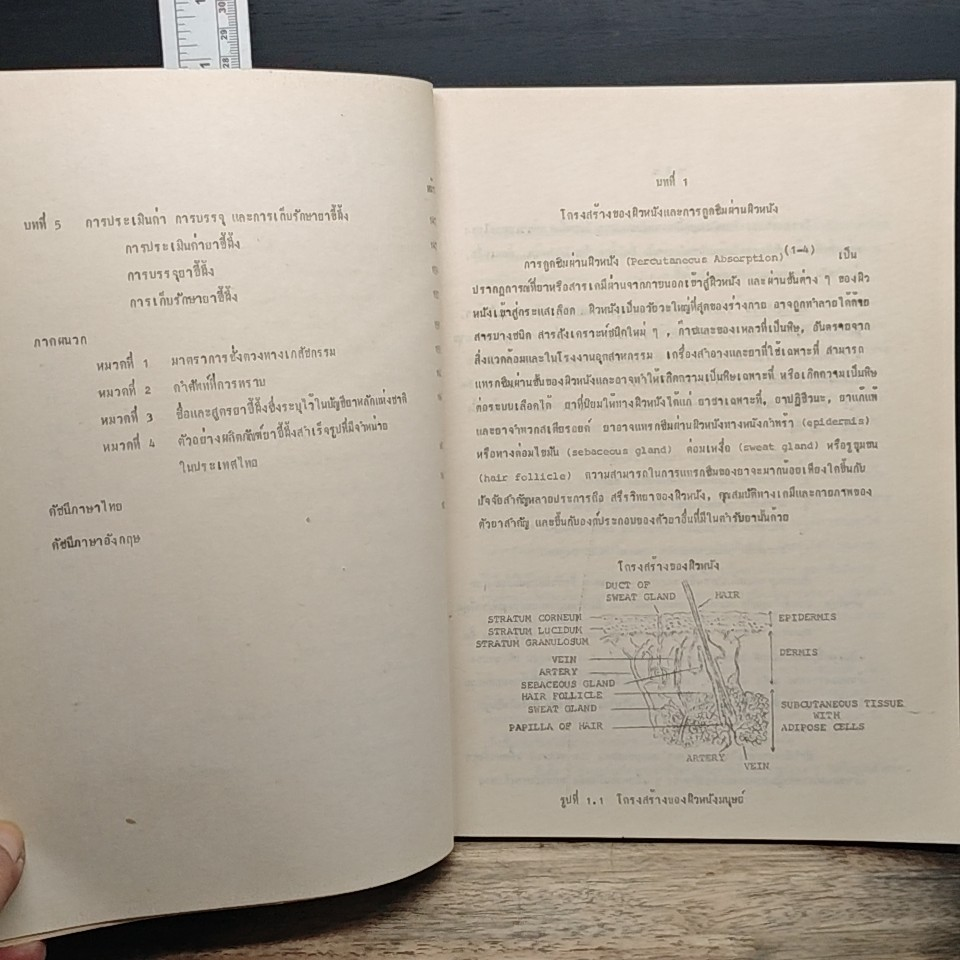 บทที่ 5 การประเมินค่า การบรรจุ และการเก็บรักษายาขี้ผึ้ง
การประเมินค่ายาขี้ผึ้ง
การบรรจุยาขี้ผึ้ง
การเก็บรักษายาขี้ผึ้ง
ภาคผนวก
หมวดที่ 1 มาตราการชั่งตวงทางเภสัชกรรม
หมวดที่ 2 คำศัพท์ที่ควรทราบ
หมวดที่ 3 ชื่อและสูตรยาขี้ผึ้งซึ่งระบุไว้ในบัญชียาหลักแห่งชาติ
หมวดที่ 4 ตัวอย่างผลิตภัณฑ์ยาขี้ผึ้งสำเร็จรูปที่มีจำหน่าย
ในประเทศไทย
ดัชนีภาษาไทย
ดัชนีภาษาอังกฤษ
บทที่ 1
โครงสร้างของผิวหนังและการดูดซึมผ่านผิวหนัง
การดูดซึมผ่านผิวหนัง (Percutaneous Absorption)(1-4) เป็น
ปรากฏการณ์ที่ยาหรือสารเคมีผ่านจากภายนอกเข้าสู่ผิวหนัง และผ่านชั้นต่าง ๆ ของผิว
หนังเข้าสู่กระแสเลือด ผิวหนังเป็นอวัยวะใหญ่ที่สุดของร่างกาย อาจถูกทำลายได้ด้วย
สารบางชนิด สารสังเคราะห์ชนิดใหม่ ๆ , ก๊าซและของเหลวที่เป็นพิษ, อันตรายจาก
สิ่งแวดล้อมและในโรงงานอุตสาหกรรม เครื่องสำอางและยาที่ใช้เฉพาะที่ สามารถ
แทรกซึมผ่านชั้นของผิวหนังและอาจทำให้เกิดความเป็นพิษเฉพาะที่ หรือเกิดความเป็นพิษ
ต่อระบบเลือดได้ ยาที่นิยมให้ทางผิวหนังได้แก่ ยาชาเฉพาะที่, ยาปฏิชีวนะ, ยาแก้แพ้
และยาจำพวกสเตียรอยด์ ยาอาจแทรกซึมผ่านผิวหนังทางหนังกำพร้า (epidermis)
หรือทางต่อมไขมัน (sebaceous gland) ต่อมเหงื่อ (sweat gland) หรือรูขุมขน
(hair follicle) ความสามารถในการแทรกซึมของยาจะมากน้อยเพียงใดขึ้นกับ
ปัจจัยสำคัญหลายประการคือ สรีรวิทยาของผิวหนัง, คุณสมบัติทางเคมีและกายภาพของ
ตัวยาสำคัญ และขึ้นกับองค์ประกอบของตัวยาอื่นที่มีในตำรับยานั้นด้วย
โครงสร้างของผิวหนัง
DUCT OF
SWEAT GLAND
HAIR
STRATUM CORNEUM
STRATUM LUCIDUM
STRATUM GRANULOSUM
VEIN
ARTERY
SEBACEOUS GLAND
HAIR FOLLICLE
SWEAT GLAND
PAPILLA OF HAIR
EPIDERMIS
DERMIS
SUBCUTANEOUS TISSUE
WITH
ADIPOSE CELLS
ARTERY
VEIN
รูปที่ 1.1 โครงสร้างของผิวหนังมนุษย์